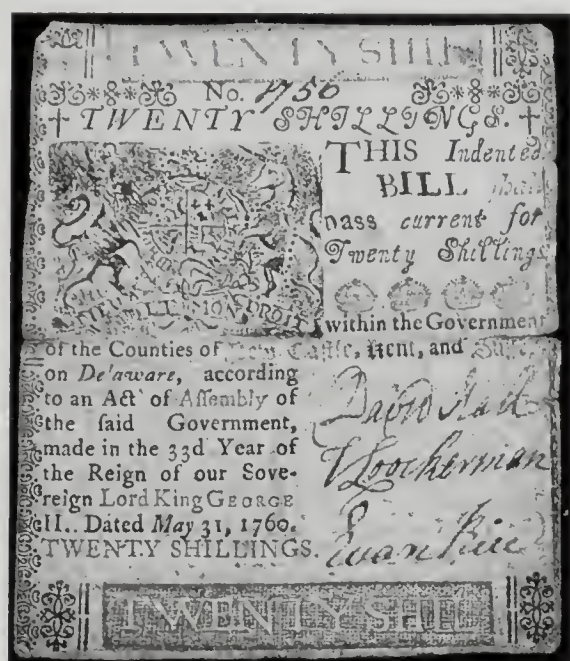 TWENTY SHILL
No. 1750
† TWENTY SHILLINGS. †
THIS Indented
BILL shall
pass current for
Twenty Shillings
DIEU ET MON DROIT
within the Government
of the Counties of New-Castle, Kent, and Sussex
on De'aware, according
to an Act of Assembly of
the said Government,
made in the 33d Year of
the Reign of our Sove-
reign Lord King GEORGE
II.. Dated May 31, 1760.
TWENTY SHILLINGS.
David Hall
V Loockerman
Evan Rice
TWENTY SHIL